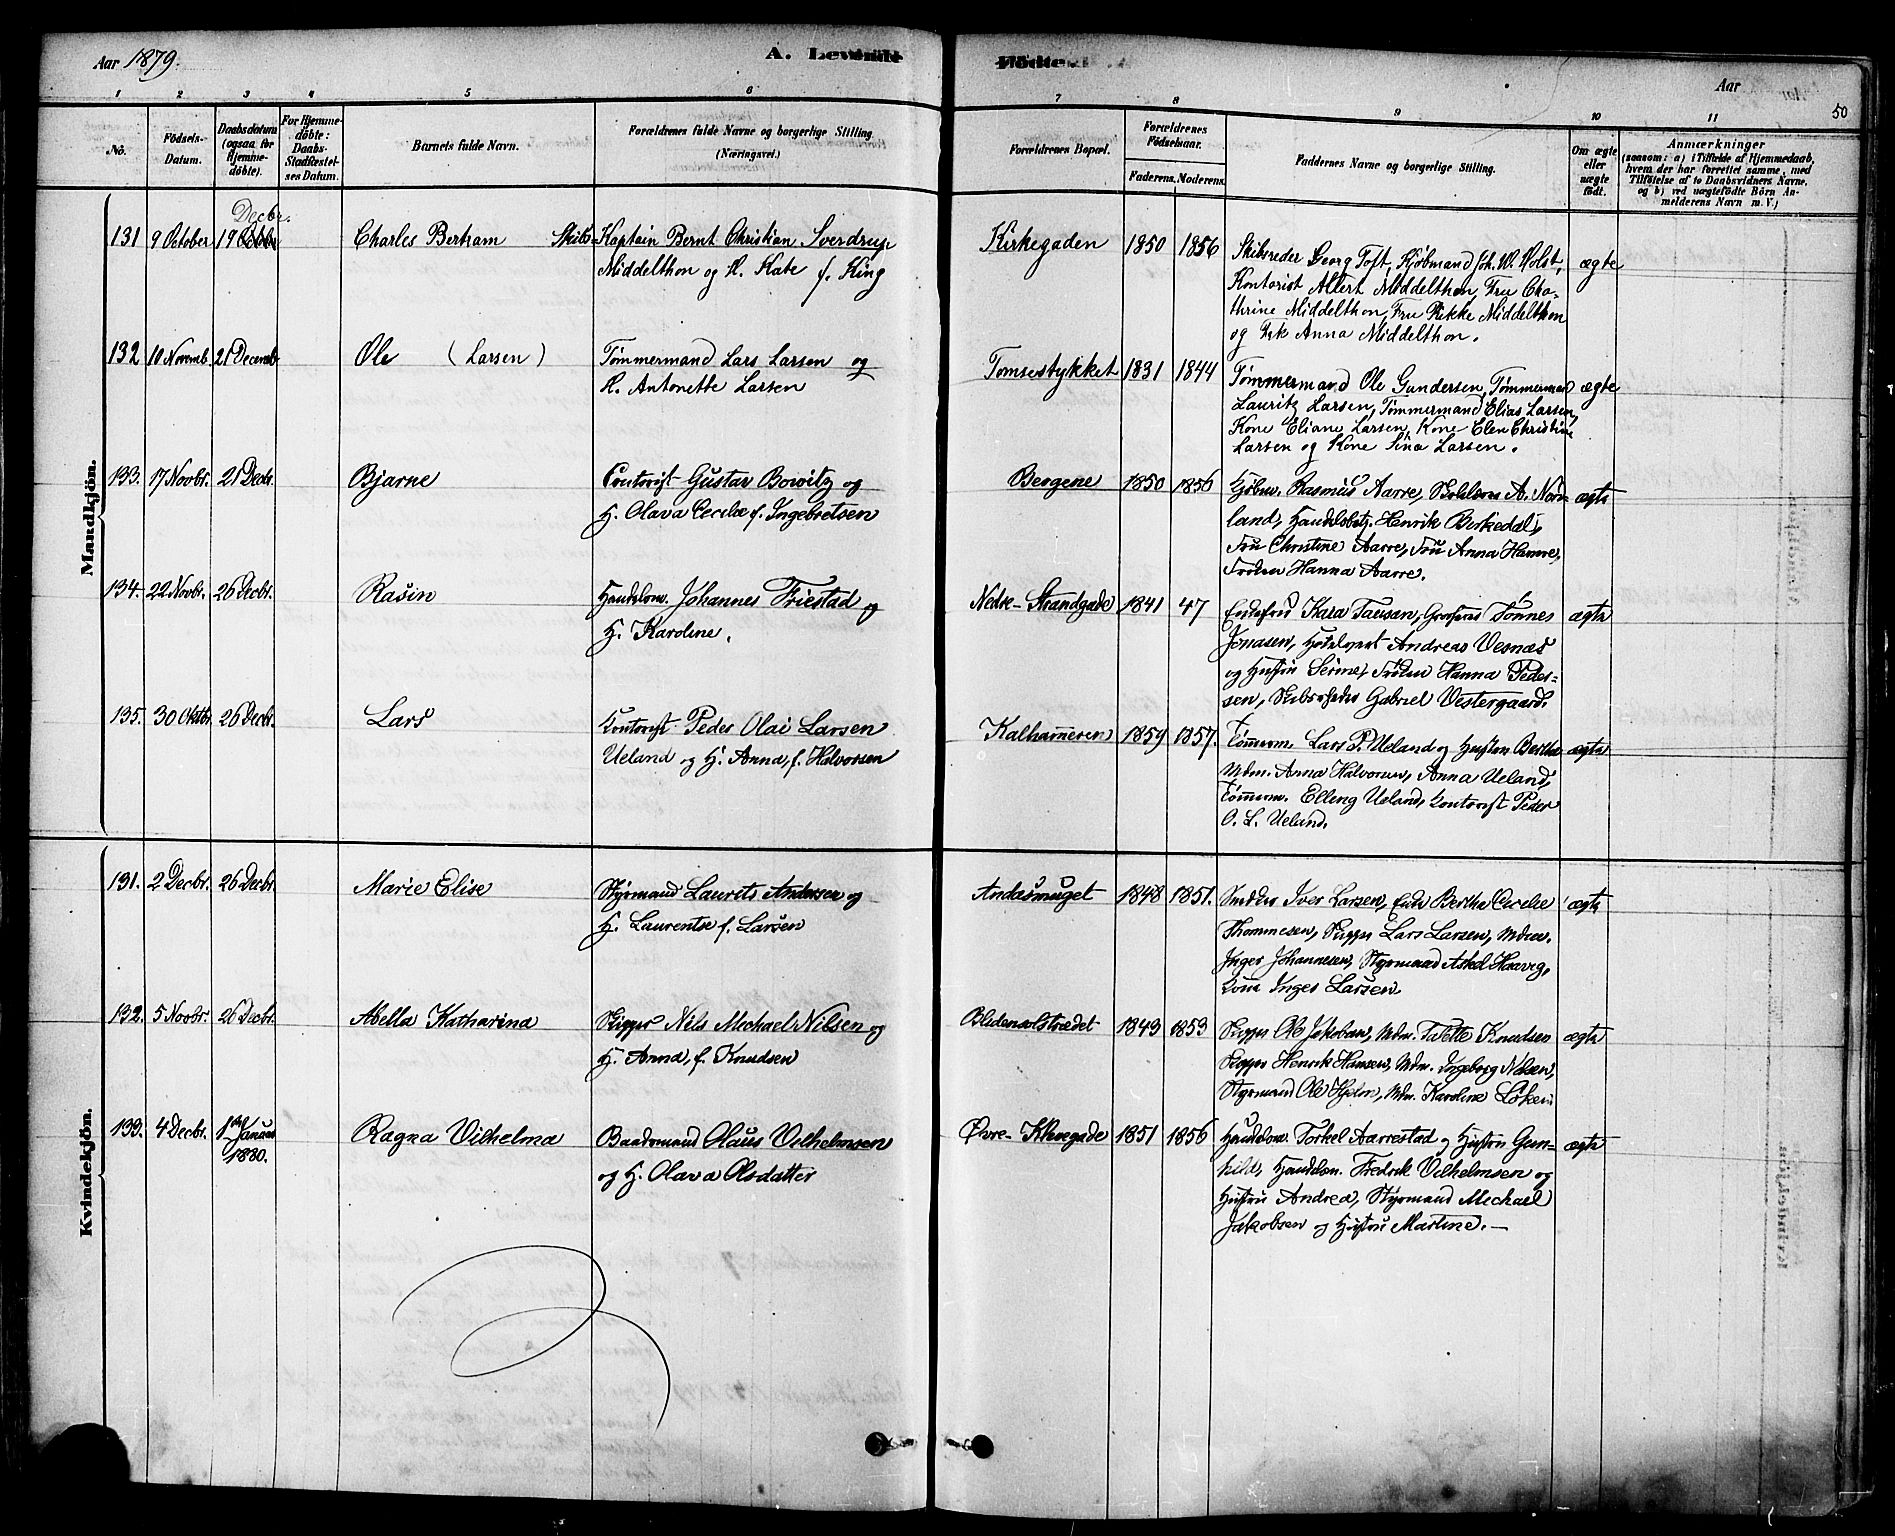 Aar 1879.
A. Levende
Fødte.
Aar
50
1 2 3 4 5 6 7 8 9 10 11
No.
Födsels-
Datum.
Daabsdatum
(ogsaa for
Hjemme-
döbte).
For Hjemme-
döbte:
Daabs-
Stadfæstel-
ses Datum.
Barnets fulde Navn.
Forældrenes fulde Navne og borgerlige Stilling
(Næringsvei.)
Forældrenes Bopæl.
Forældrenes
Födselsaar.
Faderens. Moderens.
Faddernes Navne og borgerlige Stilling.
Om ægte
eller
uægte
födt.
Anmærkninger
(saasom: a) i Tilfælde af Hjemmedaab,
hvem der har forrettet samme, med
Tilföielse af to Daabsvidners Navne,
og b) ved uægtefödte Börn An-
melderens Navn m. V.)
Mandkjön.
131 9 October 19 Decbr. Charles Bertram Skibs-Kaptain Bernt Christian Sverdrup
Middelthon og H. Kate f. King
Kirkegaden 1850 1856
Skibsreder Georg Toft, Kjøbmand Joh. W. Holst,
Kontorist Allert Middelthon, Fru Cha-
thrine Middelthon, Fru Rikke Middelthon
og Frk Anna Middelthon.
ægte
132 10 Novemb. 21 Decemb Ole (Larsen) Tømmermand Lars Larsen og
H. Antonette Larsen
Tomsestykket 1831 1844
Tømmermand Ole Gundersen, Tømmermand
Lauritz Larsen, Tømmermand Elias Larsen,
Kone Eliane Larsen, Kone Elen Christine
Larsen og Kone Sina Larsen.
ægte
133. 17 Novbr. 21 Decbr. Bjarne Contorist Gustav Bowitz og
H. Olava Cecilie f. Ingebretsen
Bergene 1850 1856
Kjøbm. Rasmus Aarre, A. Nord-
land, Handelsbetj. Henrik Birkedal,
Fru Christine Aarre, Fru Anna Hamre,
Frøken Hanna Aarre.
ægte
134. 22 Novbr. 26 Decbr. Rasin Handelsm. Johannes Friestad og
H. Karoline.
Nedre-Strandgade 1841 47
Tønnes
Jonasen, Andreas Vesnæs
og Hustru Serine, Frøken Hanna Peder-
sen, Skibsreder Gabriel Vestergaard.
ægte
135. 30 Oktbr. 26 Decbr. Lars Kontorist Peder Olai Larsen
Ueland og H. Anna, f. Halvorsen
Kalhammeren 1859 1857.
Tømmerm. Lars P. Ueland og Hustru Bertha
Mdm. Anna Halvorsen, Anna Ueland,
Tømmerm. Elling Ueland, Kontorist Peder
O. L. Ueland.
ægte
Kvindekjön.
131. 2 Decbr. 26 Decbr. Marie Elise Styrmand Laurits Andersen og
H. Laurentse f. Larsen
Andasmuget 1848 1851.
Iver Larsen, Bertha Cecilie
Thommesen, Skipper Lars Larsen, Mdm.
Inger Johannesen, Styrmand Askel Haavig,
Kone Inger Larsen
ægte
132. 5 Novbr. 26 Decbr. Abella Katharina Skipper Nils Michael Nilsen og
H. Anna, f. Knudsen
Blidensolstrædet 1849 1853
Skipper Ole Jakobsen, Mdm. Talette Knudsen
Skipper Henrik Hansen, Mdm. Ingeborg Nilsen,
Styrmand Ole Hjelm, Mdm. Karoline Løken
ægte
133. 4 Decbr. 1ste Januar
1880. Ragna Vilhelma Baadsmand Olaus Vilhelmsen
og H. Olava Olsdatter
Øvre-Klevegade 1851 1856
Handelsm. Torkel Aarrestad og Hustru Gun-
hild, Handelsm. Fredrik Vilhelmsen og
Hustru Andrea, Styrmand Michael
Jakobsen og Hustru Martine. —
ægte